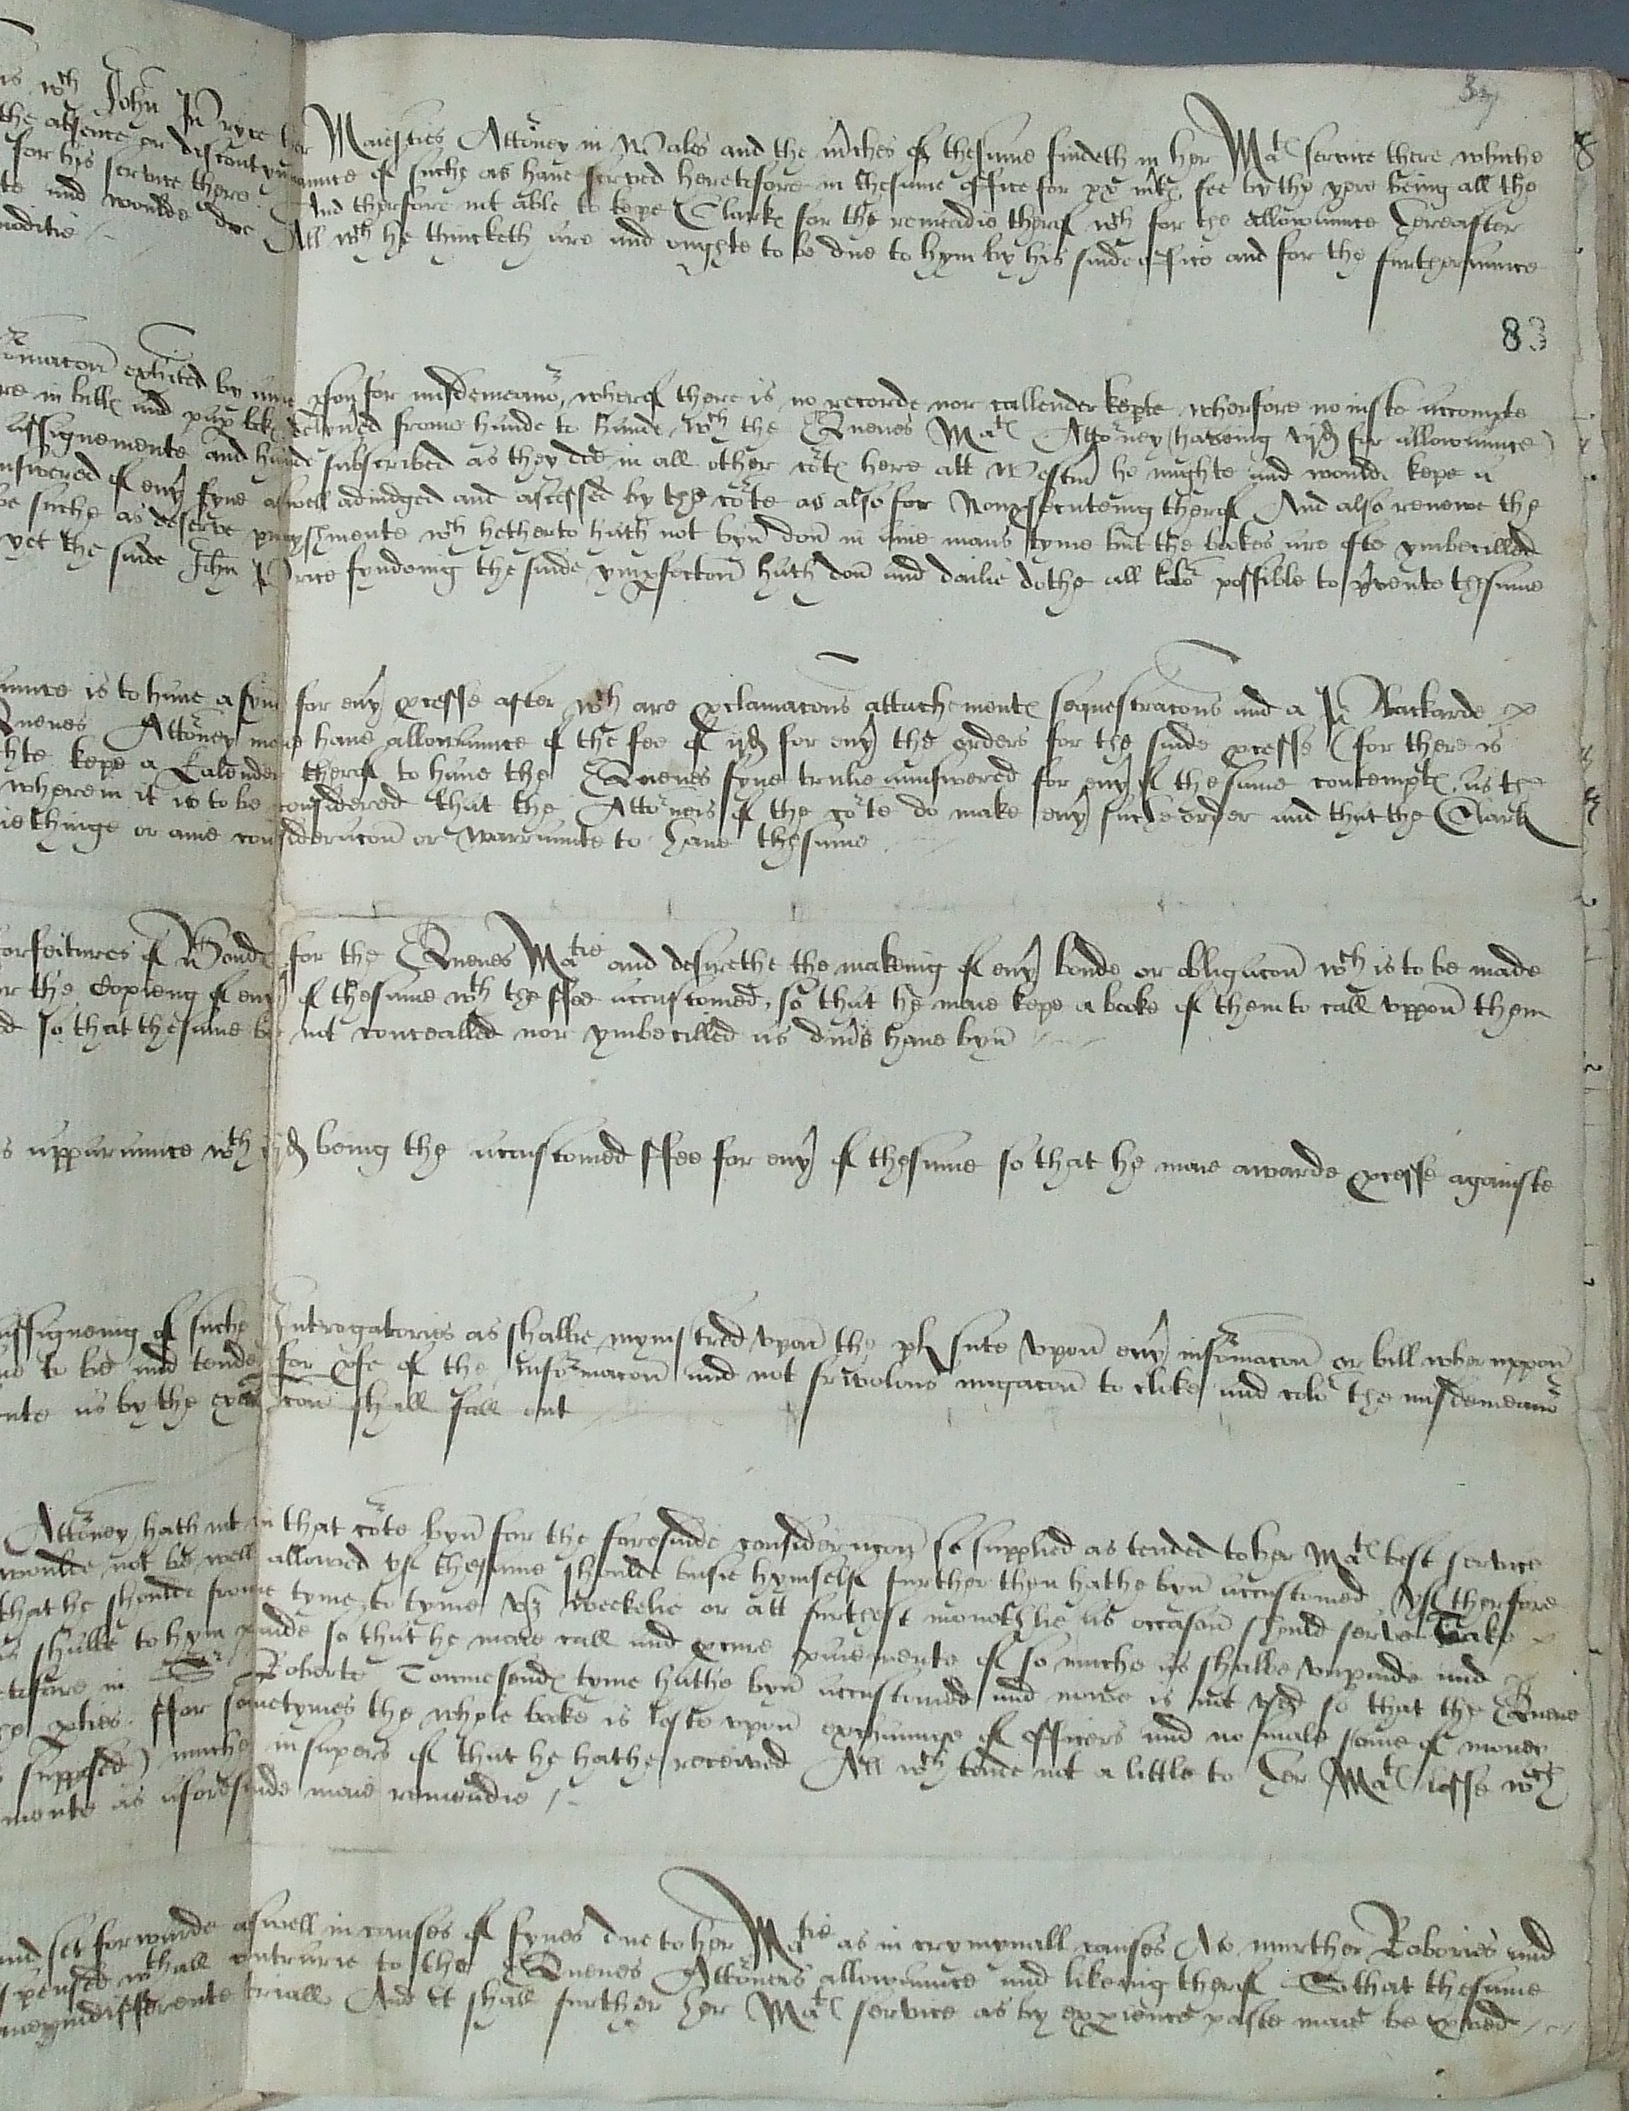 37
is wth John Pryce her Maiesties Attorney in Wales and the mches of thesame findeth in her Mats service there whiche
the absence or discontynuaunce of suche as have served heretofore in thesame office for xx mks fee by the yere being all the
for his service there And therfore not able to kepe Clarks for the remeadie therof wth for the allowaunce hereafter
and woulde doe All wch he thincketh are and oughte to be due to hym by his saide office and for the furtheraunce
moditie
83
ormacon exhited by anie pson for misdemeanor, wherof there is no recorde nor callender kepte wherfore no iuste accompte
re in bills and pap boks delyvred frome hande to hande, wth the Quenes Mats Attorney (haveing xijd for allowaunce)
assignemente and hande subscribed as they doe in all other cots here att Westm he mighte and woulde kepe a
nswered of eny fyne aswell adiudged and assessed by the corte as also for Nonpsecuteing therof And also renewe the
be suche as deserve punyshmente wch hetherto hath not byn don in anie mans tyme but the bookes are ofte ymbecilled
yet the saide John Price fyndeing the saide ympfection hath don and dailie dothe all labor possible to pvente thesame
aunce is to have a fyne for eny pcesse after wch are pclamacons attachements sequestracons and a Plackarde
Quenes Attorney maie have allowaunce of the fee of ijd for eny the orders for the saide pcesse (for there is
hte kepe a Calender therof to have the Quenes fyne trulie aunswered for eny of thesame contempts, as the
wherein it is to be considered that the Attorneis of the corte do make eny suche order and that the Clark
ie thinge or anie consideracon or warraunte to have thesame
forfeitures of Bonds for the Quenes Matie and desyrethe the makeing of eny bonde or obligacon wch is to be made
or the Copieng of eny of thesame wth the ffee accustomed, so that he maie kepe a booke of them to call uppon them
d so that thesame be not concealled nor ymbecilled as divs have byn
s apparaunce wth ijd being the accustomed ffee for eny of thesame so that he maie awarde pcesse againste
assigneing of suche Introgatories as shalbe mynistred upon the pl sute upon eny informacon or bill wheruppon
ue to be and tende for pfe of the Informacon and not frivolous negacon to cloke and color the misdemeanor
nte as by the exacon shall fall out
Attorney hath not in that corte byn for the foresaide consideracon so supplied as tended to her Mats best service
woulde not be well allowed yf thesame shoulde busie hymself further then hathe byn accustomed Yf therfore
that he shoulde frome tyme to tyme viz weekelie or att furthest monethlie as occasion should serve Take
as shalbe to hym paide so that he maie call and pcure paiemente of so muche as shalbe unpaide and
tofore in Sr Roberte Tounesends tyme hathe byn accustomed and nowe is not used so that the Quene
pties. ffor sometymes the whole booke is loste upon exchaunge of officers and no smale some of money
supposed) muche in supers of that he hathe received All wch tende not a little to her Mats losse wch
mente as aforesaide maie remeadie
and set forwarde aswell in causes of fynes due to her Matie as in crymynall causes As murther Robories and
spensed wthall contrarie to the Quenes Attorneis allowaunce and likeing therof So that thesame
indifferente triall And it shall further her Mats service as by expience paste maie be pved